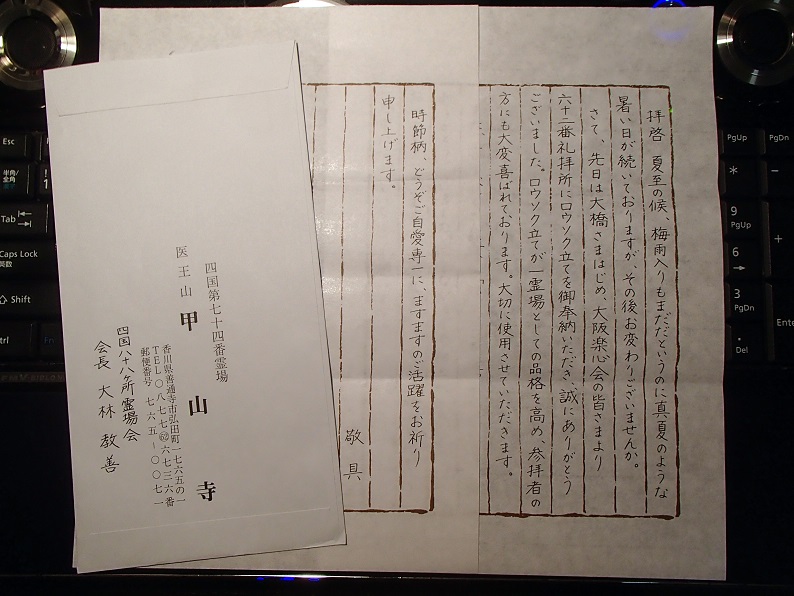 拝啓 夏至の候、梅雨入りもまだだというのに真夏のような
暑い日が続いておりますが、その後お変わりございませんか。
さて、先日は大橋さまはじめ、大阪楽心会の皆さまより
六十二番礼拝所にロウソク立てを御奉納いただき、誠にありがとう
ございました。ロウソク立てが一霊場としての品格を高め、参拝者の
方にも大変喜ばれております。大切に使用させていただきます。
時節柄、どうぞご自愛専一に、ますますのご活躍をお祈り
申し上げます。
敬具
四国第七十四番霊場
医王山 甲山寺
香川県善通寺市弘田町一七六五の一
TEL〇八七七㊿六三二六番
郵便番号 七六五-〇〇七一
四国八十八所霊場会
会長 大林教善
Esc
半角/
全角
Tab
Caps Lock
Shift
PgUp
PgDn
*
-
9
PgUp
+
6
3
PgDn
Enter
.
Del